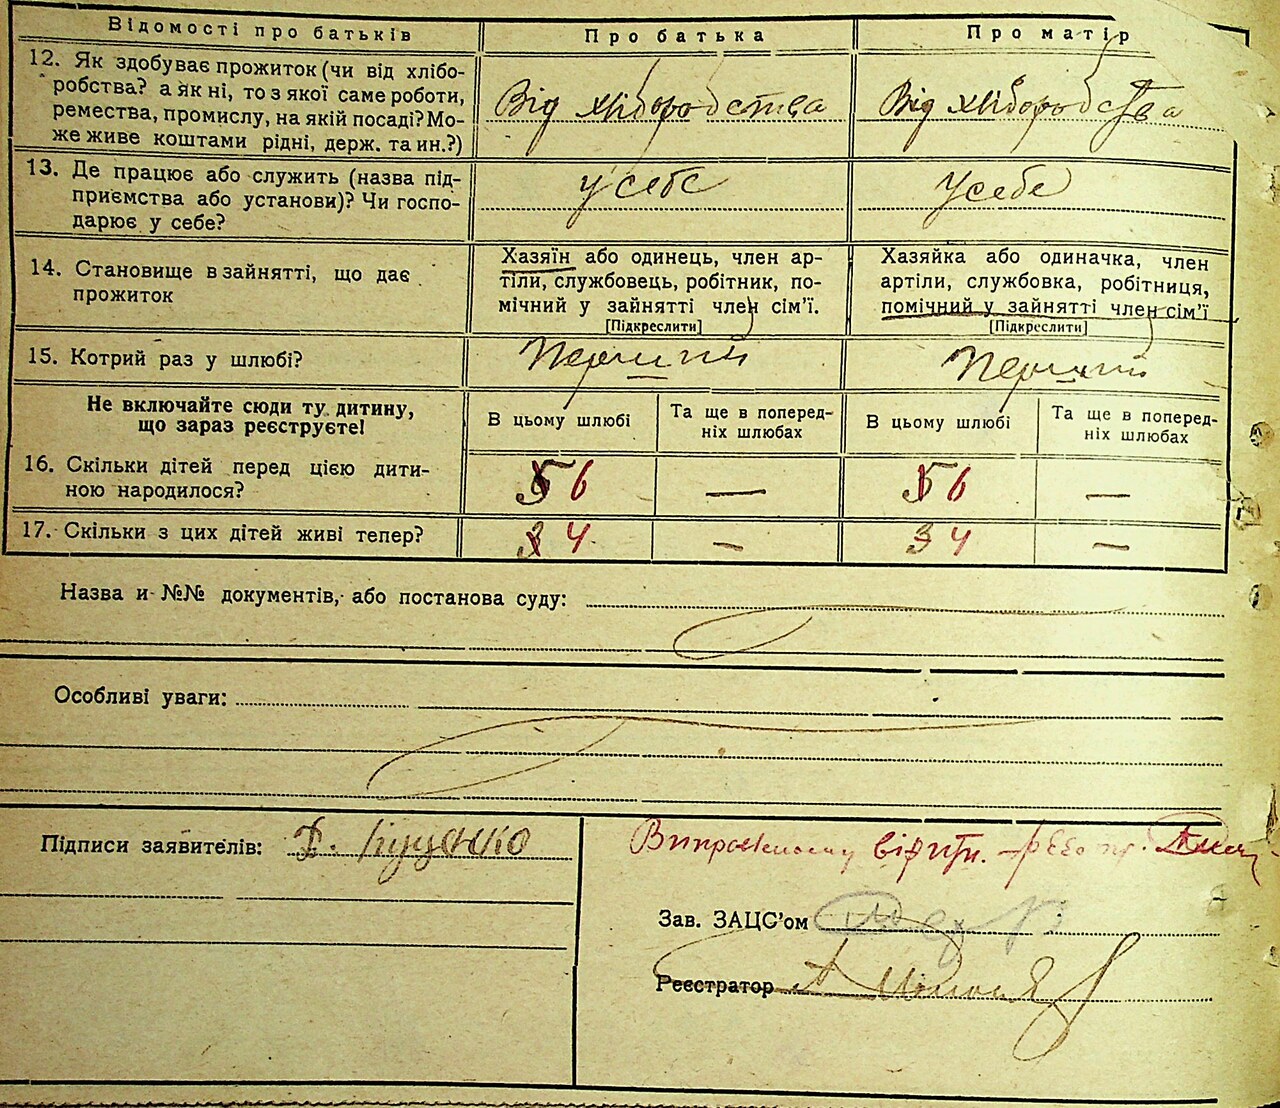 Відомості про батьків Про батька Про матір
12. Як здобуває прожиток (чи від хлібо-
робства? а як ні, то з якої саме роботи,
ремества, промислу, на якій посаді? Мо-
же живе коштами рідні, держ. та ин.?)
Від хліборобства Від хліборобства
13. Де працює або служить (назва під-
приємства або установи)? Чи госпо-
дарює у себе?
У себе У себе
14. Становище в зайнятті, що дає
прожиток
Хазяїн або одинець, член ар-
тіли, службовець, робітник, по-
мічний у зайнятті член сім'ї.
[Підкреслити]
Хазяйка або одиначка, член
артіли, службовка, робітниця,
помічний у зайнятті член сім'ї
[Підкреслити]
15. Котрий раз у шлюбі? Перший Перший
Не включайте сюди ту дитину,
що зараз реєструєте!
В цьому шлюбі Та ще в поперед-
ніх шлюбах
В цьому шлюбі Та ще в поперед-
ніх шлюбах
16. Скільки дітей перед цією дити-
ною народилося?
5 6 — 5 6 —
17. Скільки з цих дітей живі тепер? 3 4 — 3 4 —
Назва и №№ документів, або постанова суду:
Особливі уваги:
Підписи заявителів:
Виправленому вірити.
Зав. ЗАЦС'ом
Реєстратор